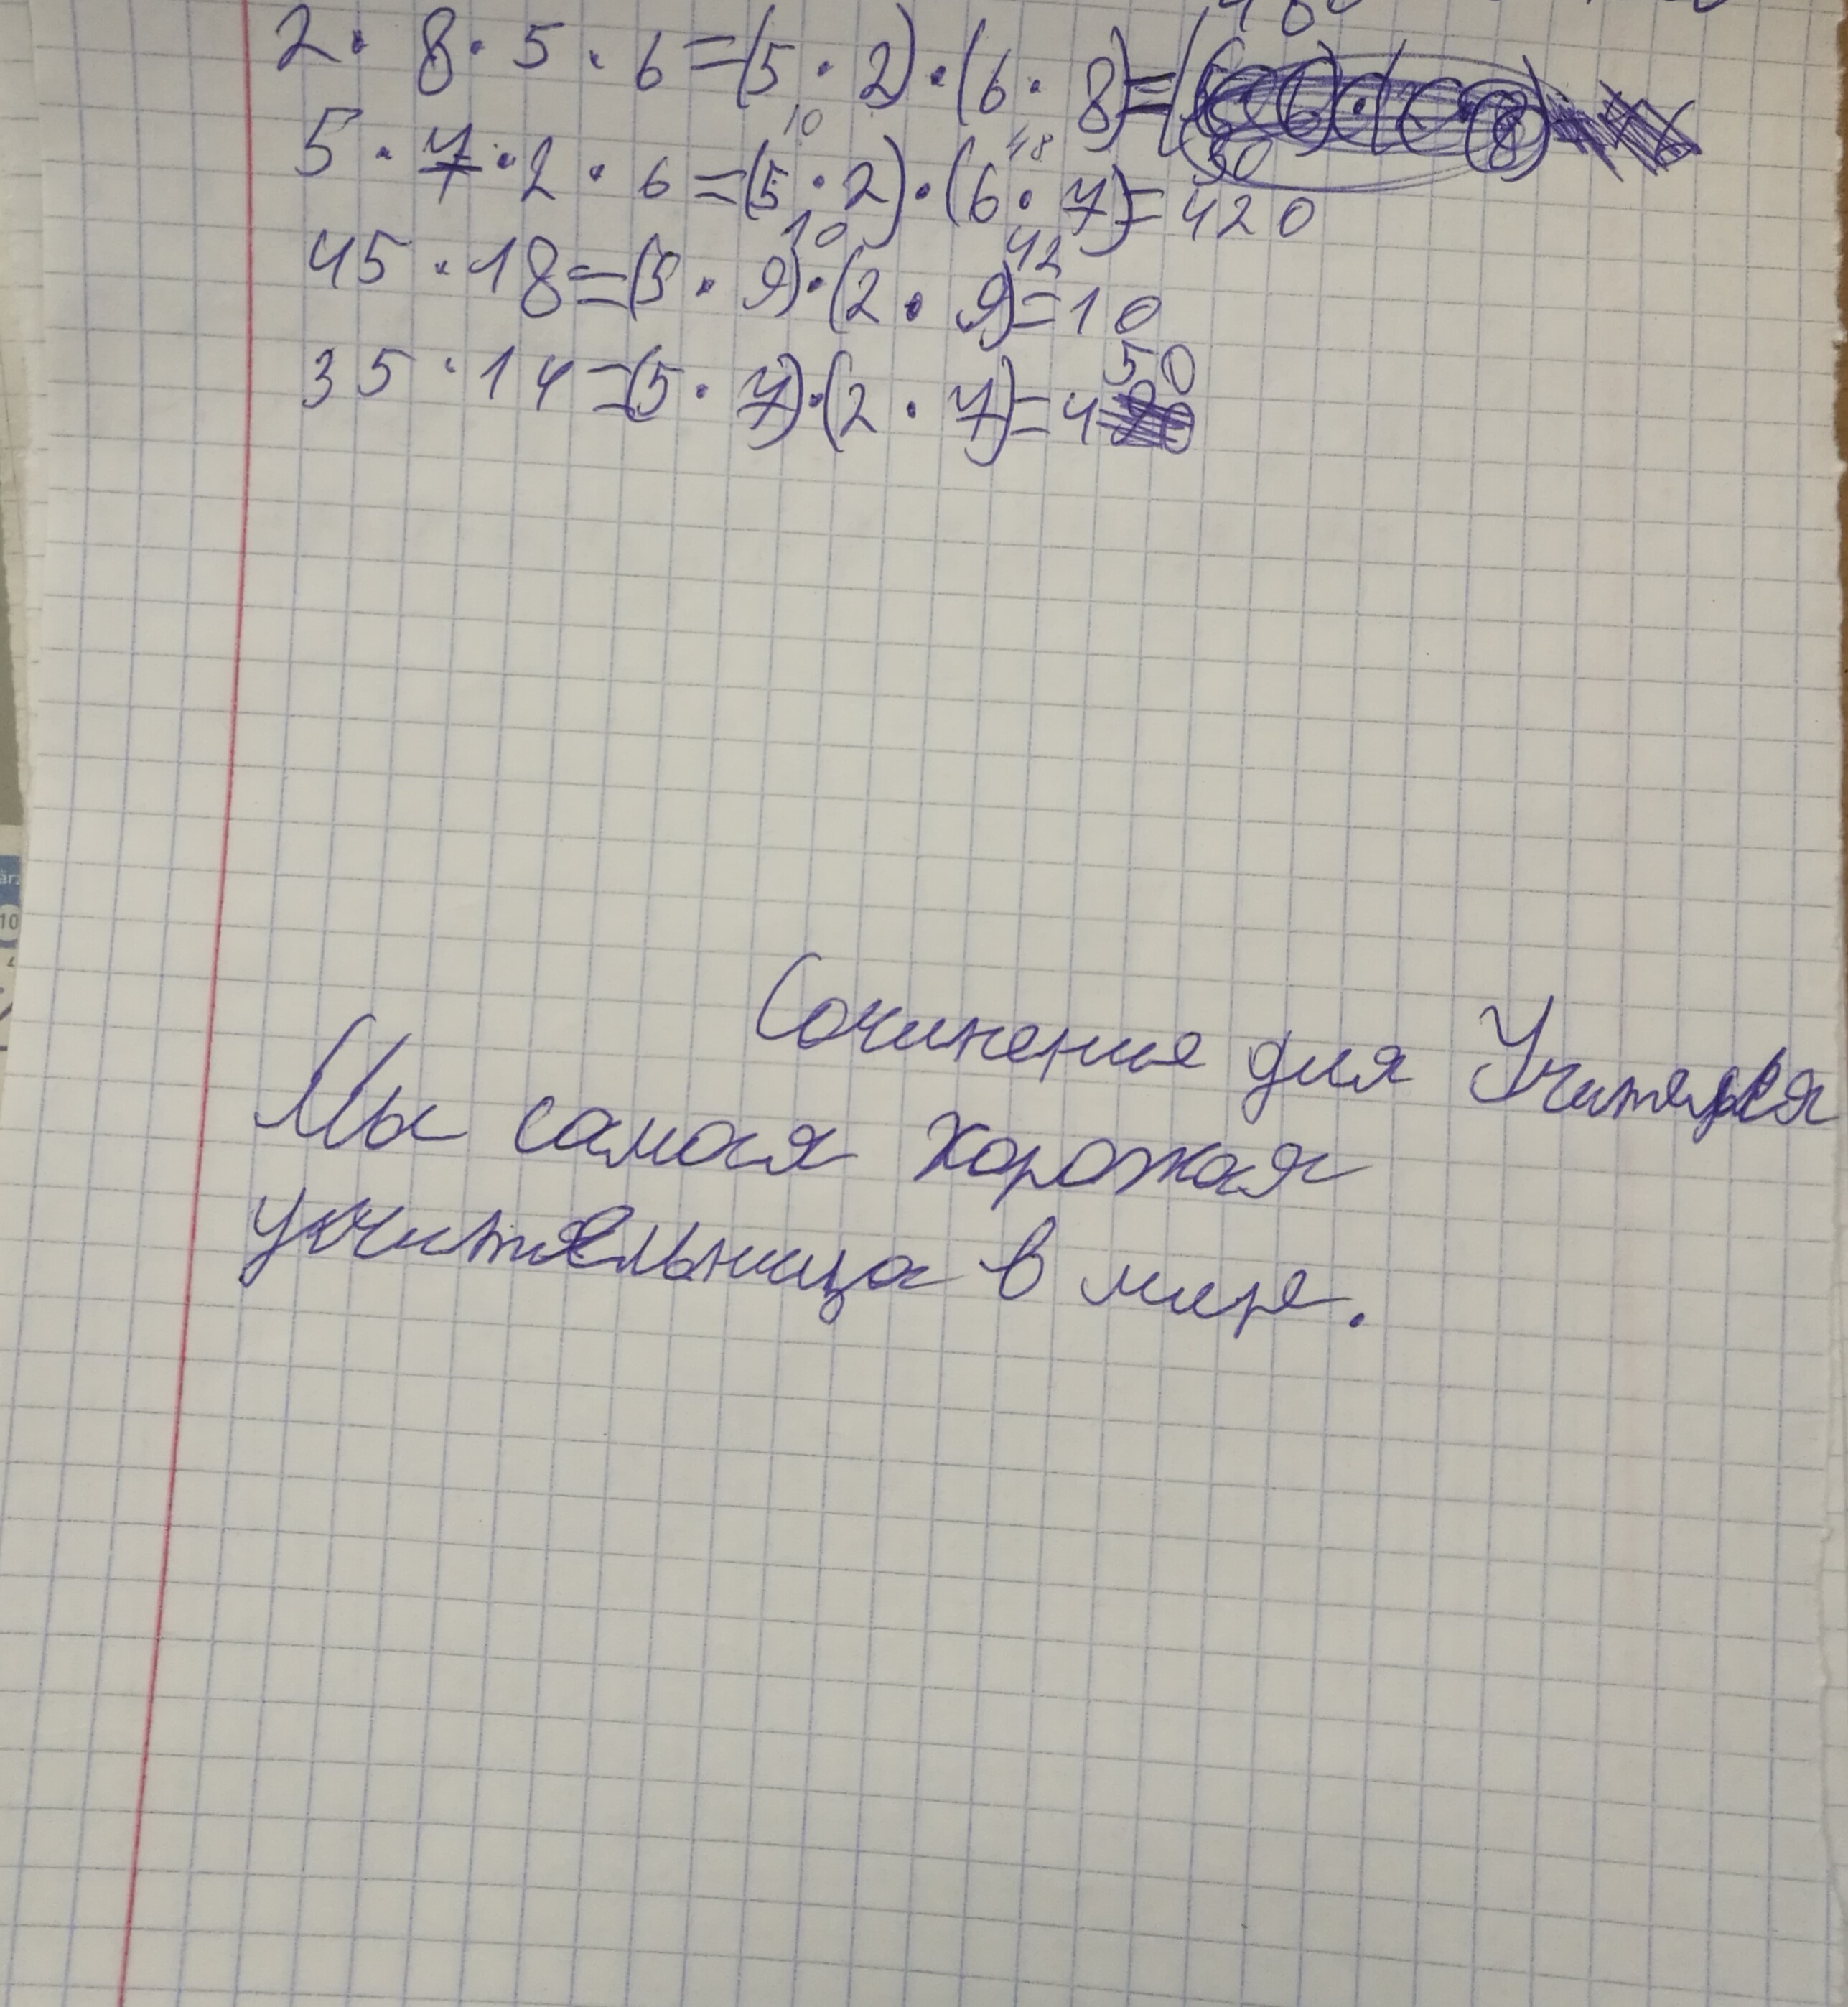 2 · 8 · 5 · 6 = (5 · 2) · (6 · 8) = (
10 48 30
5 · 7 · 2 · 6 = (5 · 2) · (6 · 7) = 420
10 42
45 · 18 = (5 · 9) · (2 · 9) = 10
50
35 · 14 = (5 · 7) · (2 · 7) = 4
Сочинение для Учителя
Мы самая хорожая
учительница в мире.